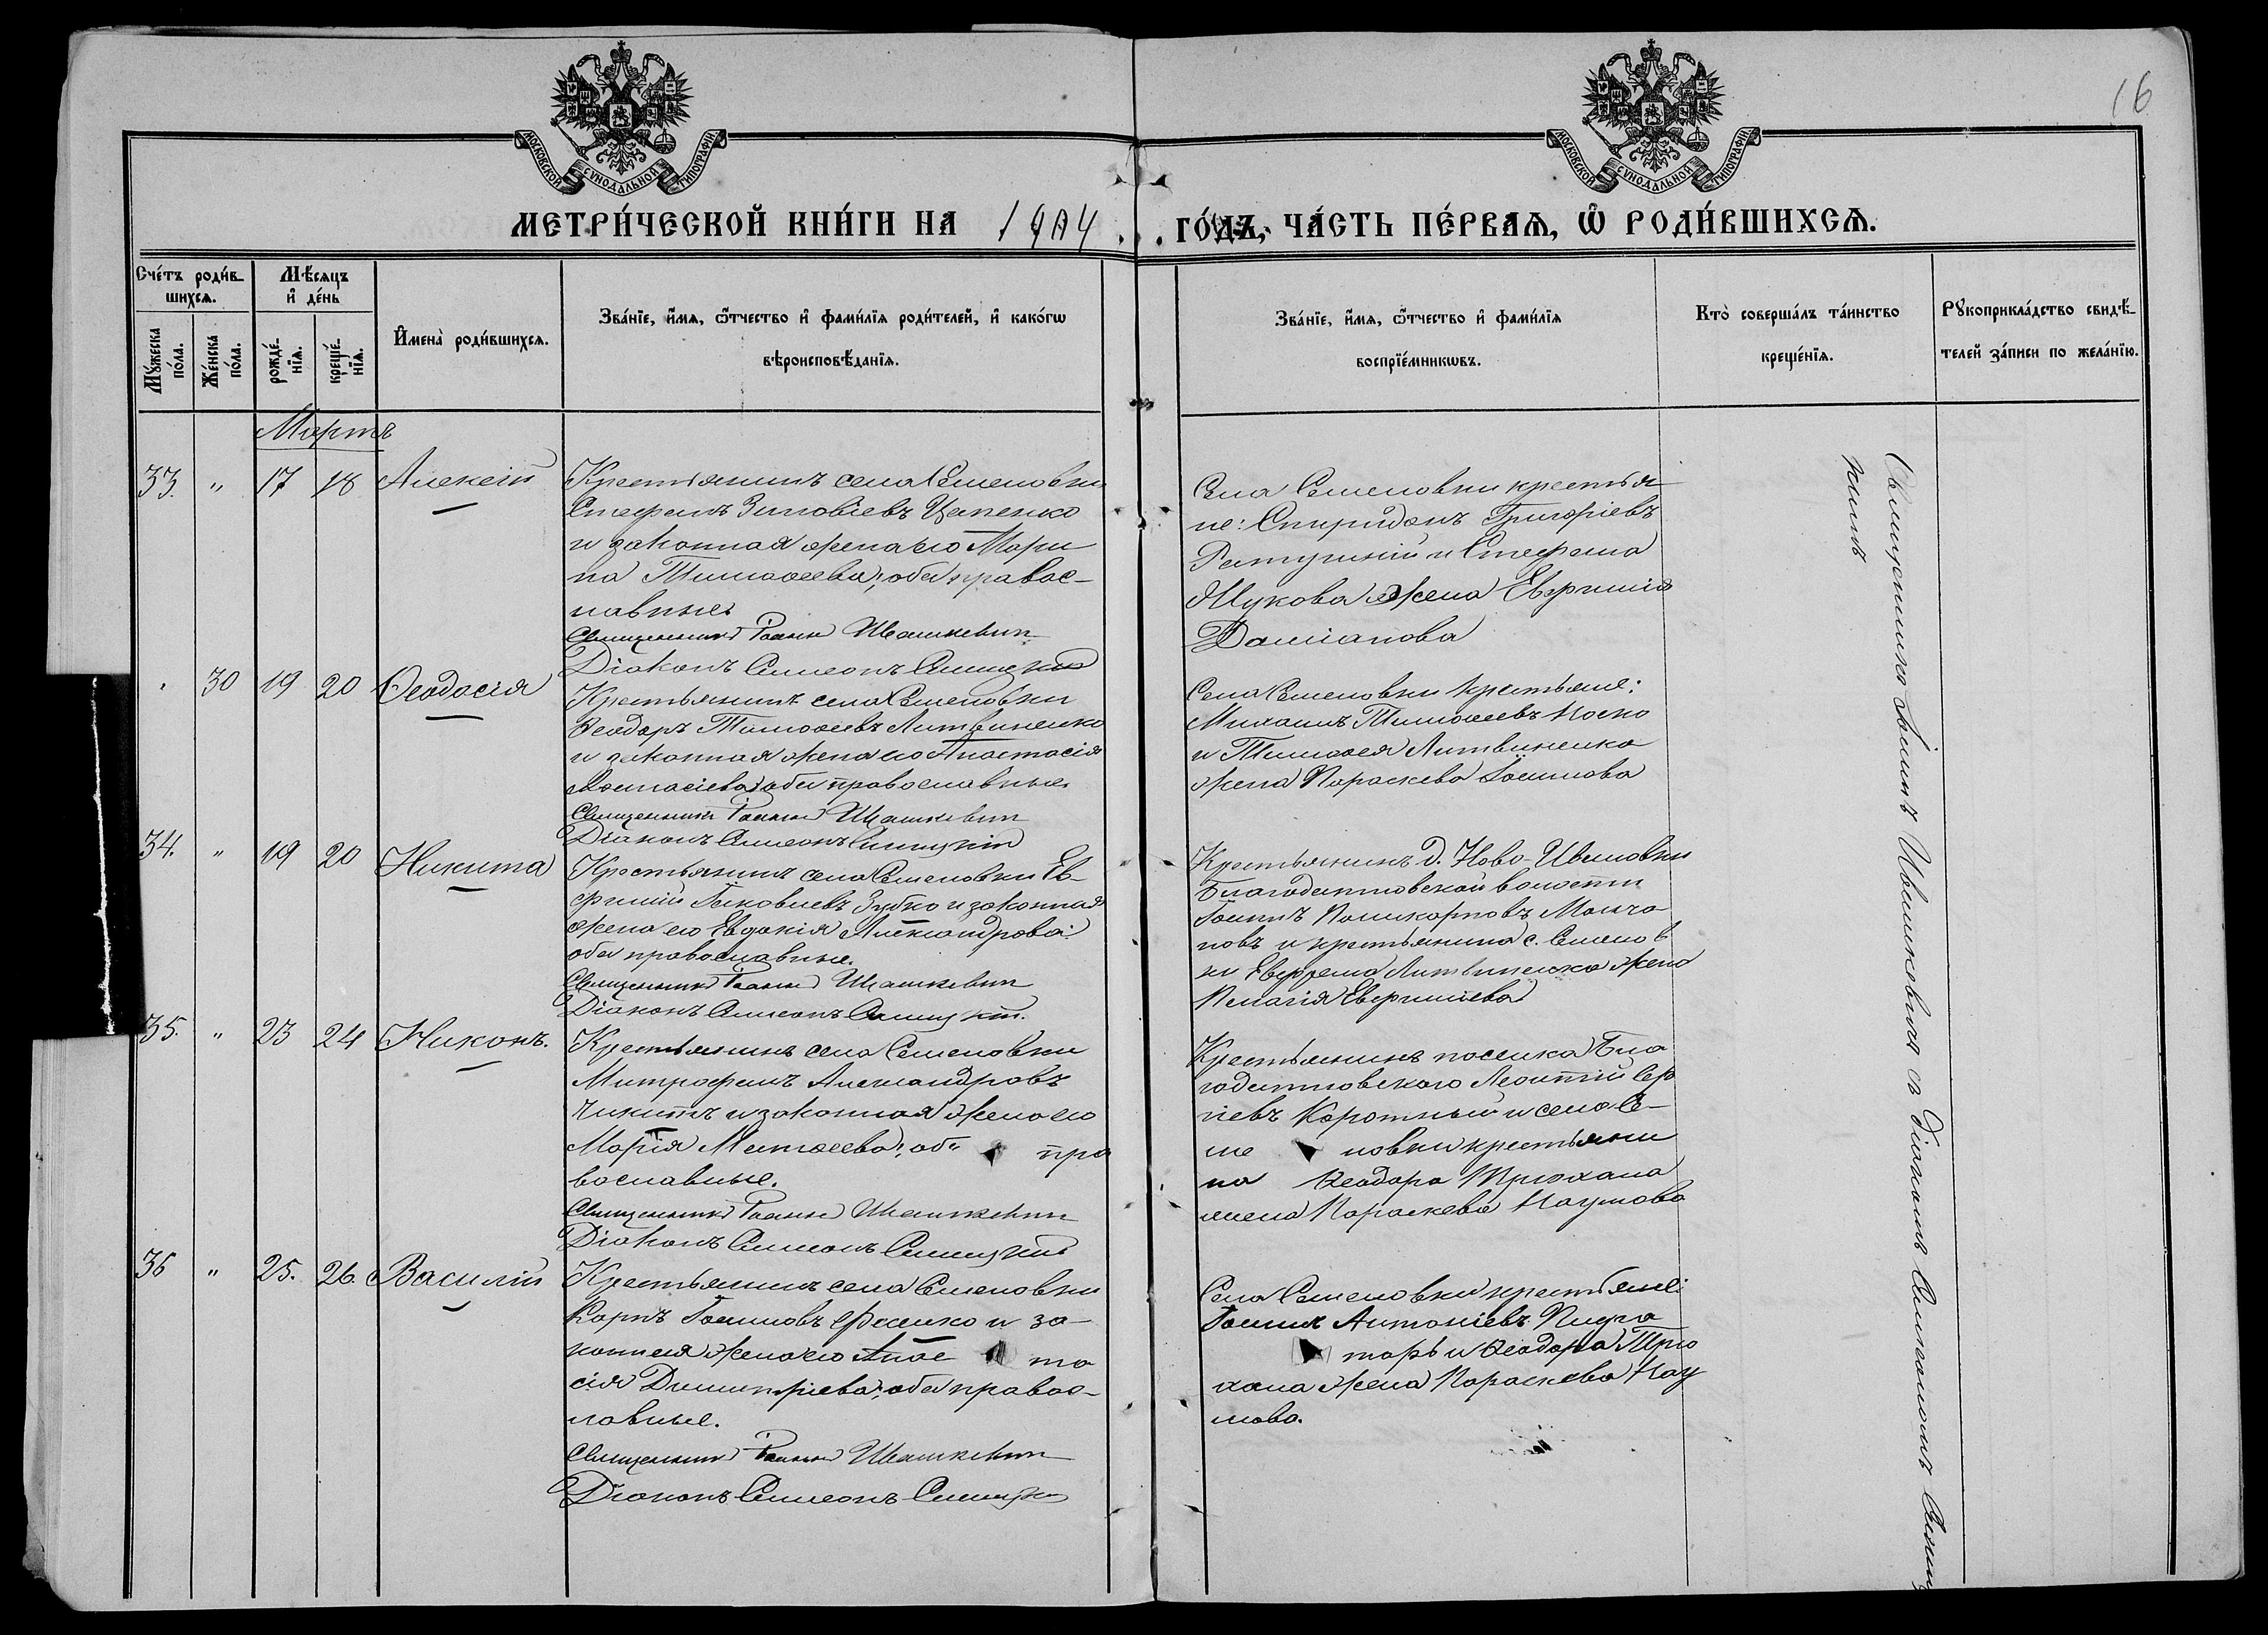 16
МОСКОВСКОЙ СУНОДАЛЬНОЙ ТИПОГРАФІИ
МОСКОВСКОЙ СУНОДАЛЬНОЙ ТИПОГРАФІИ
МЕТРИ́ЧЕСКОЙ КНИ́ГИ НА 1904 ГО́ДЪ, ЧА́СТЬ ПЕ́РВАѦ, Ѡ҆ РОДИ́ВШИХСѦ.
Сче́тъ роди́в-
шихсѧ.
Мꙋ́жеска
по́ла.
Же́нска
по́ла.
Мѣ́сѧцъ
и҆ де́нь
рожде́-
нїѧ.
креще́-
нїѧ.
И҆мена̀ роди́вшихсѧ.
Зва́нїе, и҆́мѧ, ѻ҆́тчество и҆ фами́лїѧ роди́телей, и҆ како́гѡ
вѣроисповѣ́данїѧ.
Зва́нїе, и҆́мѧ, ѻ҆́тчество и҆ фами́лїѧ
воспрїе́мникѡвъ.
Кто̀ соверша́лъ та́инство
креще́нїѧ.
Рꙋкоприкла́дство свидѣ́-
телей за́писи по жела́нїю.
Мартъ
33. " 17 18 Алексій
Крестьянинъ села Семеновки
Стефанъ Зиновіевъ Цапенко
и законная жена его Мари
на Тимофеева; оба правос-
лавные.
Священникъ Іоаннъ Ивашкевич
Діаконъ Симеонъ Синицкій
Села Семеновки крестья-
не: Спиридонъ Григоріевъ
и Стефана
Жукова жена Евфимія
Даміанова
" 30 19 20 Ѳеодосія
Крестьянинъ села Семеновки
Ѳеодоръ Тимоѳеевъ Литвиненко
и законная жена его Анастасія
оба православные.
Священникъ Іоаннъ Ивашкевич
Діаконъ Симеонъ Синицкій
Села Семеновки крестьяне:
Михаилъ Тимоѳеевъ Носко
и Тимоѳея Литвиненко
жена Параскева Іоаннова
34. " 19 20 Никита
Крестьянинъ села Семеновки Ев-
фимій Іаковлевъ Зубко и законная
жена его Евдокія Александрова:
оба православные.
Священникъ Іоаннъ Ивашкевич
Діаконъ Симеонъ Синицкій.
Крестьянинъ д. Ново-Ивановки
Благодатновской волости
Іоаннъ Поликарповъ Молча-
новъ и крестьянина с. Семенов
ки Ефрема Литвиненко жена
Пелагія Евфиміева
35. " 23 24 Никонъ.
Крестьянинъ села Семеновки
Митрофанъ Александровъ
и законная жена его
Марія Матѳеева; оба пра
вославные.
Священникъ Іоаннъ Ивашкевич
Діаконъ Симеонъ Синицкій
Крестьянинъ поселка Бла
годатновскаго Леонтій Сер
гіевъ Коротный и села Се-
ме новки крестьяни
на Ѳеодора Трюхана
жена Параскева Наумова
36 " 25. 26. Василій
Крестьянинъ села Семеновки
Карпъ Іоанновъ Фесенко и за-
конная жена его Анас та
сія Димитріева; оба правос-
лавные.
Священникъ Іоаннъ Ивашкевич
Діаконъ Симеонъ Синицкій
Села Семеновки крестьяне:
Іоаннъ Антоніевъ
и Ѳеодора Трю
хана жена Параскева Нау
мова.
Священникъ Іоаннъ Ивашкевичъ съ діакономъ Симеономъ Синиц
кимъ